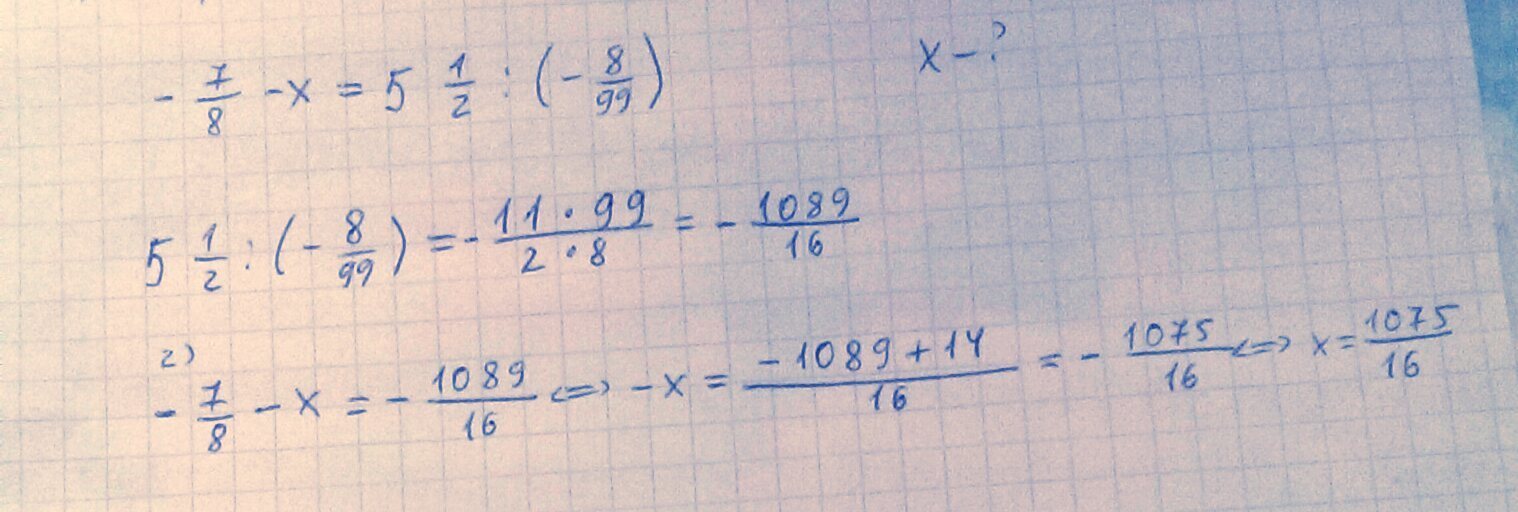 - 7/8 - x = 5 1/2 : (- 8/99) x - ?
5 1/2 : (- 8/99) = - 11 · 99 / 2 · 8 = - 1089/16
2)
- 7/8 - x = - 1089/16 <=> - x = - 1089 + 14 / 16 = - 1075/16 <=> x = 1075/16